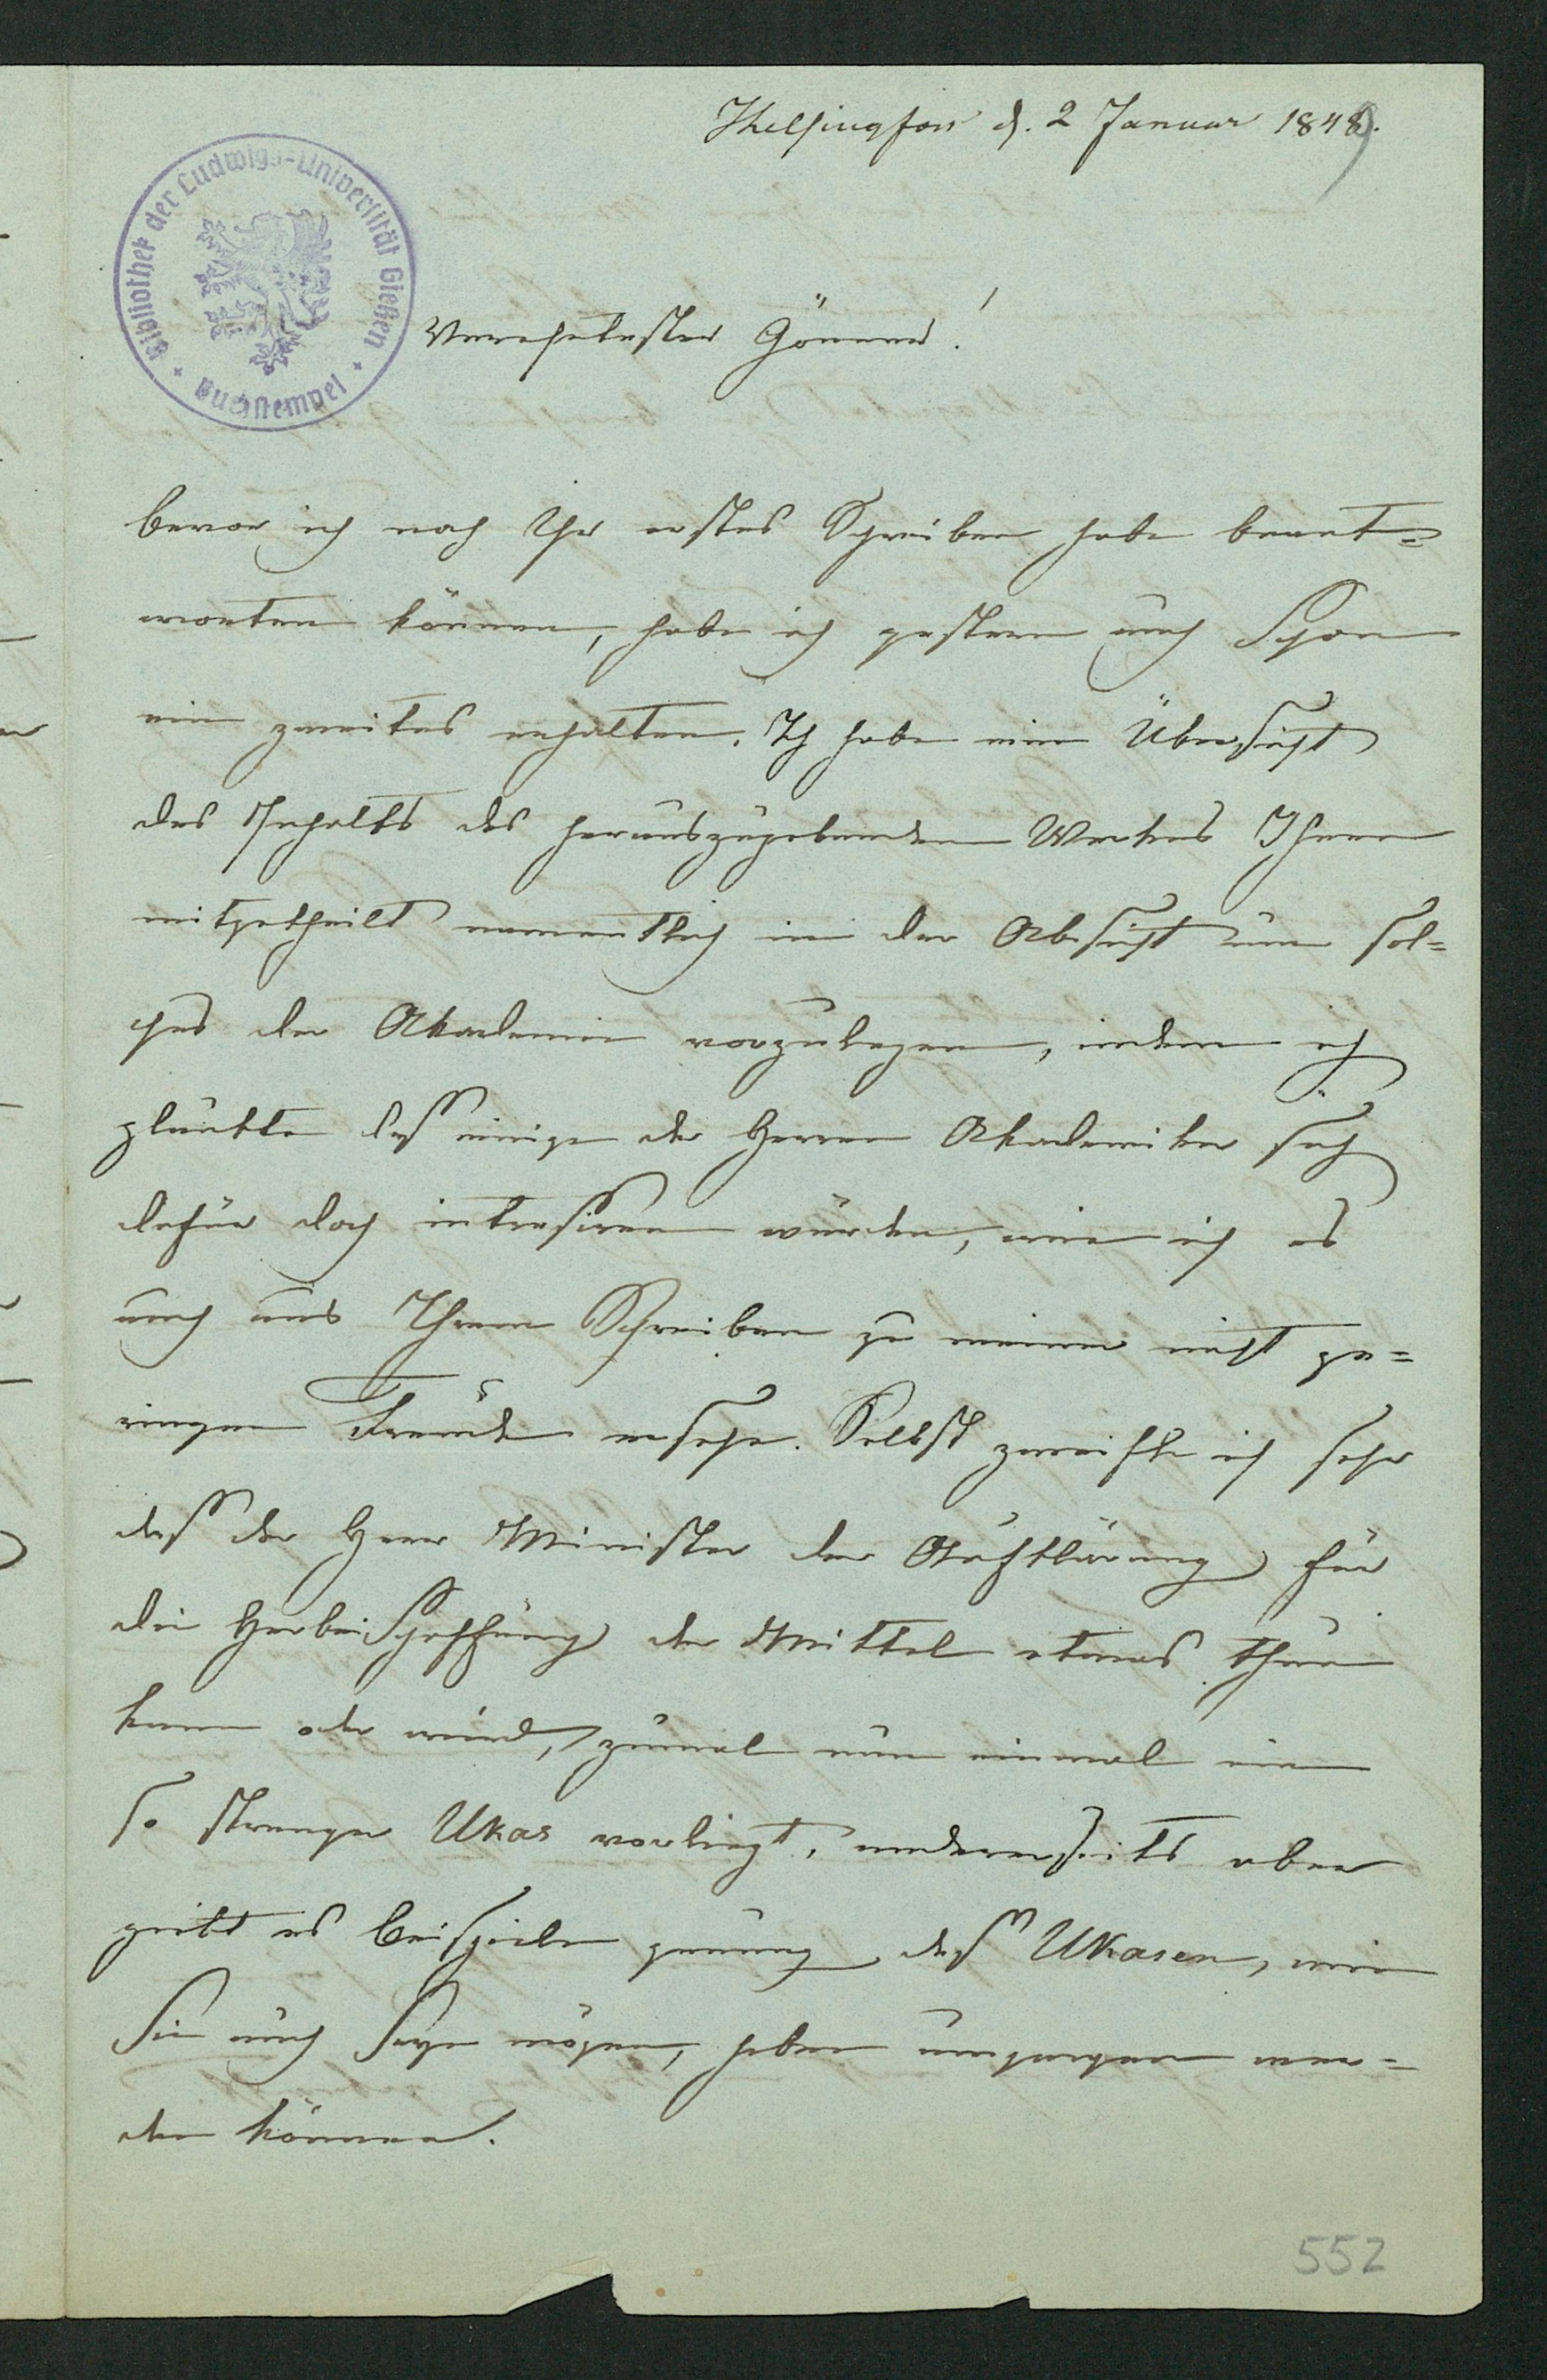 Helsingfors d. 2 Januar 1849.
Bibliothek der Ludwigs-Universität Gießen
Buchstempel
Verehrtester Gönner!
bevor ich noch Ihr erstes Schreiben habe beant=
worten können, habe ich gestern auch schon
ein zweites erhalten. Ich habe eine Übersicht
des Inhalts des herauszugebenden Werkes Ihnen
mitgetheilt namentlich in der Absicht um sol=
ches der Akademie vorzulegen, indem ich
glaubte daß einige der Herren Akademiker sich
dafür doch interesiren würden, wie ich es
auch aus Ihrem Schreiben zu meiner nicht ge=
ringen Freude ersehe. Selbst zweifle ich sehr
daß der Herr Minister der Aufklärung für
die Herbeischaffung der Mittel etwas thun
kann oder wird, zumal nun einmal ein
so strenger Ukas vorliegt, andererseits aber
giebt es Beispiele genug daß Ukasen, wie
sie auch seyn mögen, haben umgangen wer=
den können.
552